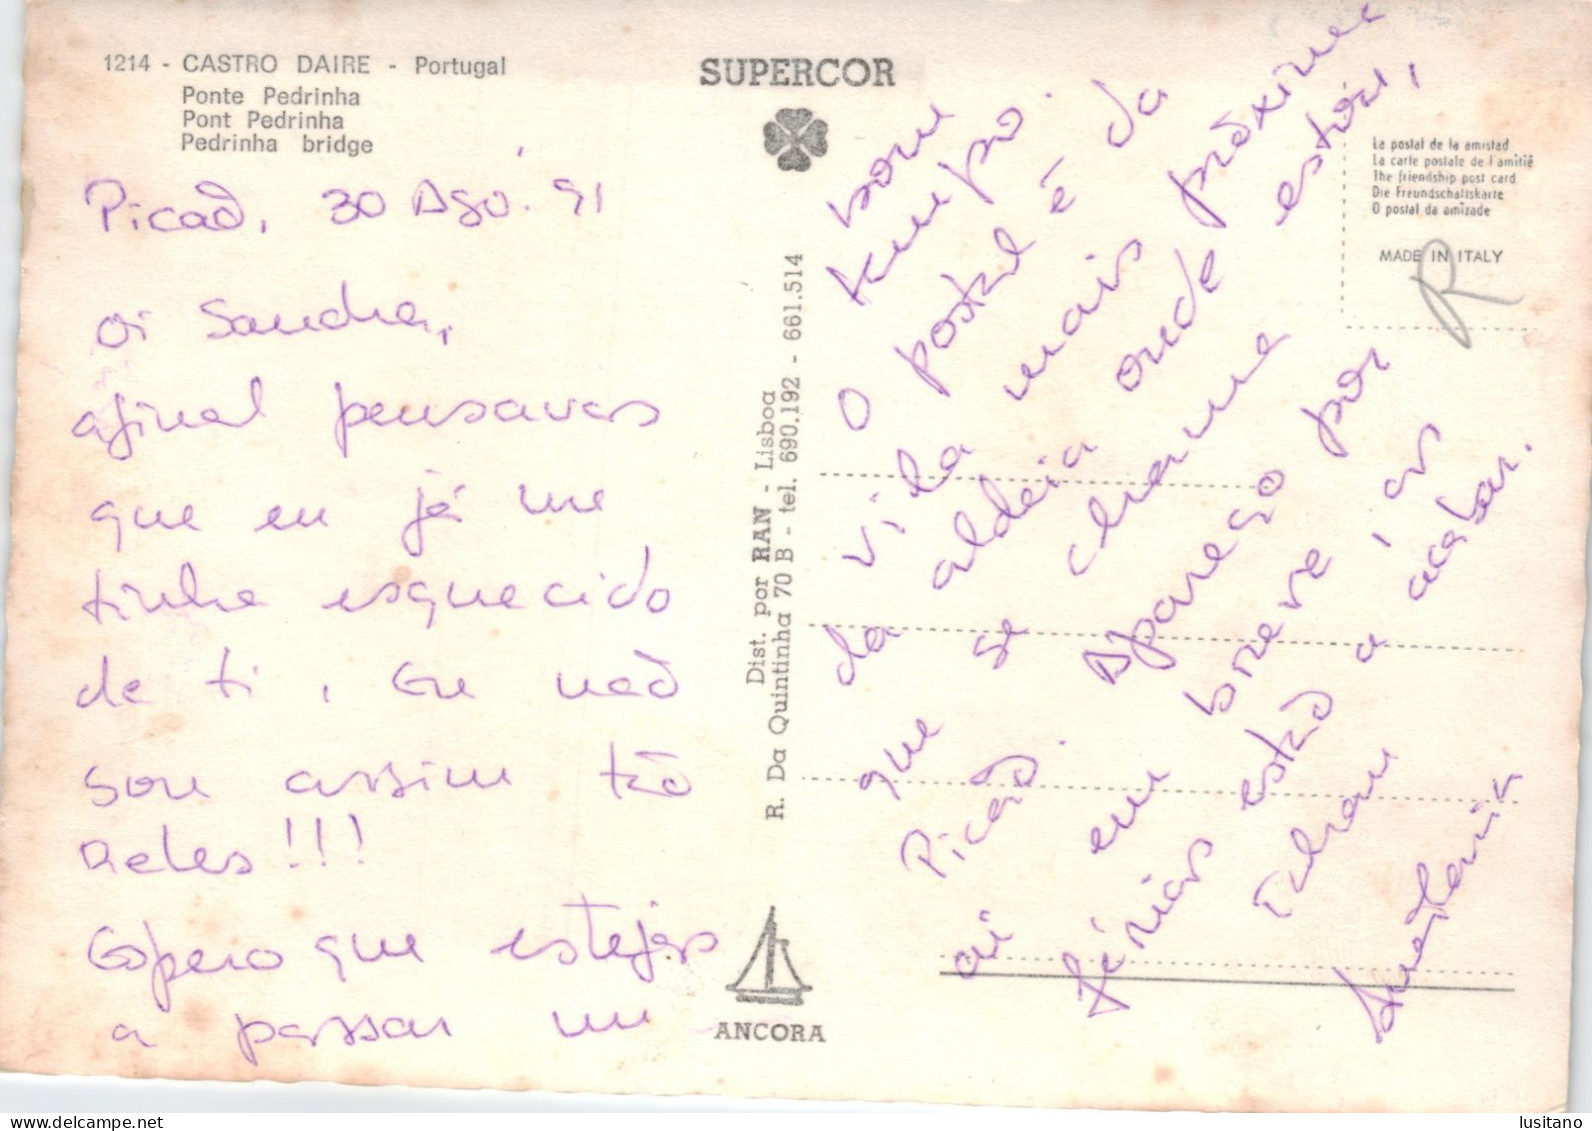 1214 - CASTRO DAIRE - Portugal
Ponte Pedrinha
Pont Pedrinha
Pedrinha bridge
SUPERCOR
Picaõ, 30 Ago. 91
Oi Sandra,
afinal pensavas
que eu já me
tinha esquecido
de ti. Eu naõ
sou assim taõ
reles!!!
Espero que estejas
a passar um
Dist. por RAN - Lisboa
R. Da Quintinha 70 B - tel. 690.192 - 661.514
ANCORA
bom
tempo.
O postal é da
vila mais próxima
da aldeia onde estou,
que se chama
Picaõ. Apareço por
aí em breve, as
férias estaõ a acabar.
La postal de la amistad
La carte postale de l'amitiè
The friendship post card
Die Freundschaltskarte
O postal da amizade
MADE IN ITALY
R
lusitano
delcampe.net